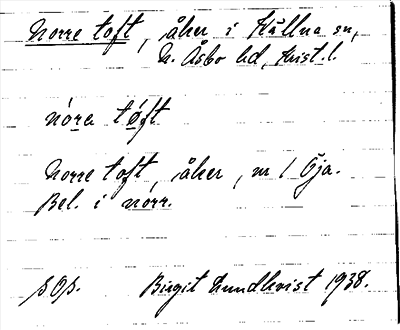 Norre toft, åker i Källna sn,
N. Åsbo hd, Krist. l.
nóra tóft
Norre toft, åker, nr 1 Öja.
Bel. i norr.
S.O.S. Birgit Lundkvist 1938.